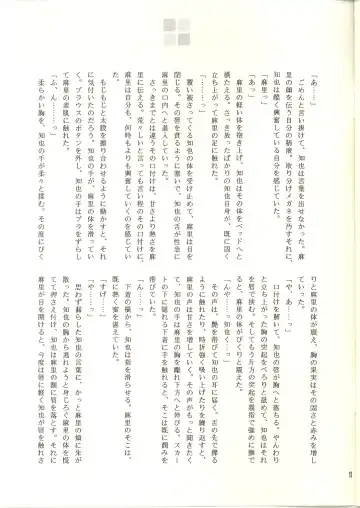 「あ……っ」
ごめんと言い掛けて、知也は言葉を出せなかった。麻
里の顔を伝う自分の精液、取り分けメガネを汚すそれに、
知也は酷く興奮している自分を感じていた。
「麻里っ」
「あっ」
麻里の軽い体を抱き上げ、知也はその体をベッドへと
横たえる。さっき放ったばかりの知也自身が、既に固く
立ち上がって麻里の足に触れた。
「………っ」
覆い被さってくる知也の体を受け止めて、麻里は目を
閉じる。その唇を貪るように塞いで、知也の舌が性急に
麻里の口内へと進入していった。
さっきまでとは違うその口付けは、甘さより熱さを麻
里に伝える。荒々しいと言っても言い程のその口付けに、
麻里は自分も、何時もよりも興奮していくのを感じてい
た。
もじもじと太股を擦り合わせるように動かすと、それ
に気付いたのだろう。知也の手が、麻里の体を滑ってい
く。ブラウスのボタンを外し、その手はブラをずらし
て麻里の素肌に触れた。
「ふ、ん……っ」
柔らかい胸を、知也の手が柔々と揉む。その度にびく
りと麻里の体が震え、胸の果実はその固さと赤みを増し
ていった。
「や、あ……っ」
口付けを解いて、知也の唇が胸へと落ちる。やんわり
と立ち上がった胸の突起をぺろりと舐めて、知也はそれ
を唇で挟む。そしてもう片方の突起を親指で強めに撫で
ると、麻里の体がびくりと震えた。
「んや……っ、知也く……っ」
その声は、艶を帯びて知也の耳に届く。舌の先で擽る
ように触れたり、時折強く吸い上げたりを繰り返すと、
麻里の声は甘さを増していく。その声がもっと聞きたく
て、知也の手は麻里の胸を離れ下方へと伸びる。スカー
トの下に隠れる下着に手を触れると、そこは既に潤みを
帯びていた。
下着の横から、知也は指を滑らせる。麻里のそこは、
既に熱く蜜を湛えていた。
「すげ……」
「や……っ」
思わず漏らした知也の言葉に、かっと麻里の頬に朱が
散った。知也の胸から逃れようと身じろぐ麻里の体を慌
てて押さえ付け、知也は麻里の額に唇を落とす。それに
麻里が目を開けると、今度は唇に軽く知也が唇を触れさ